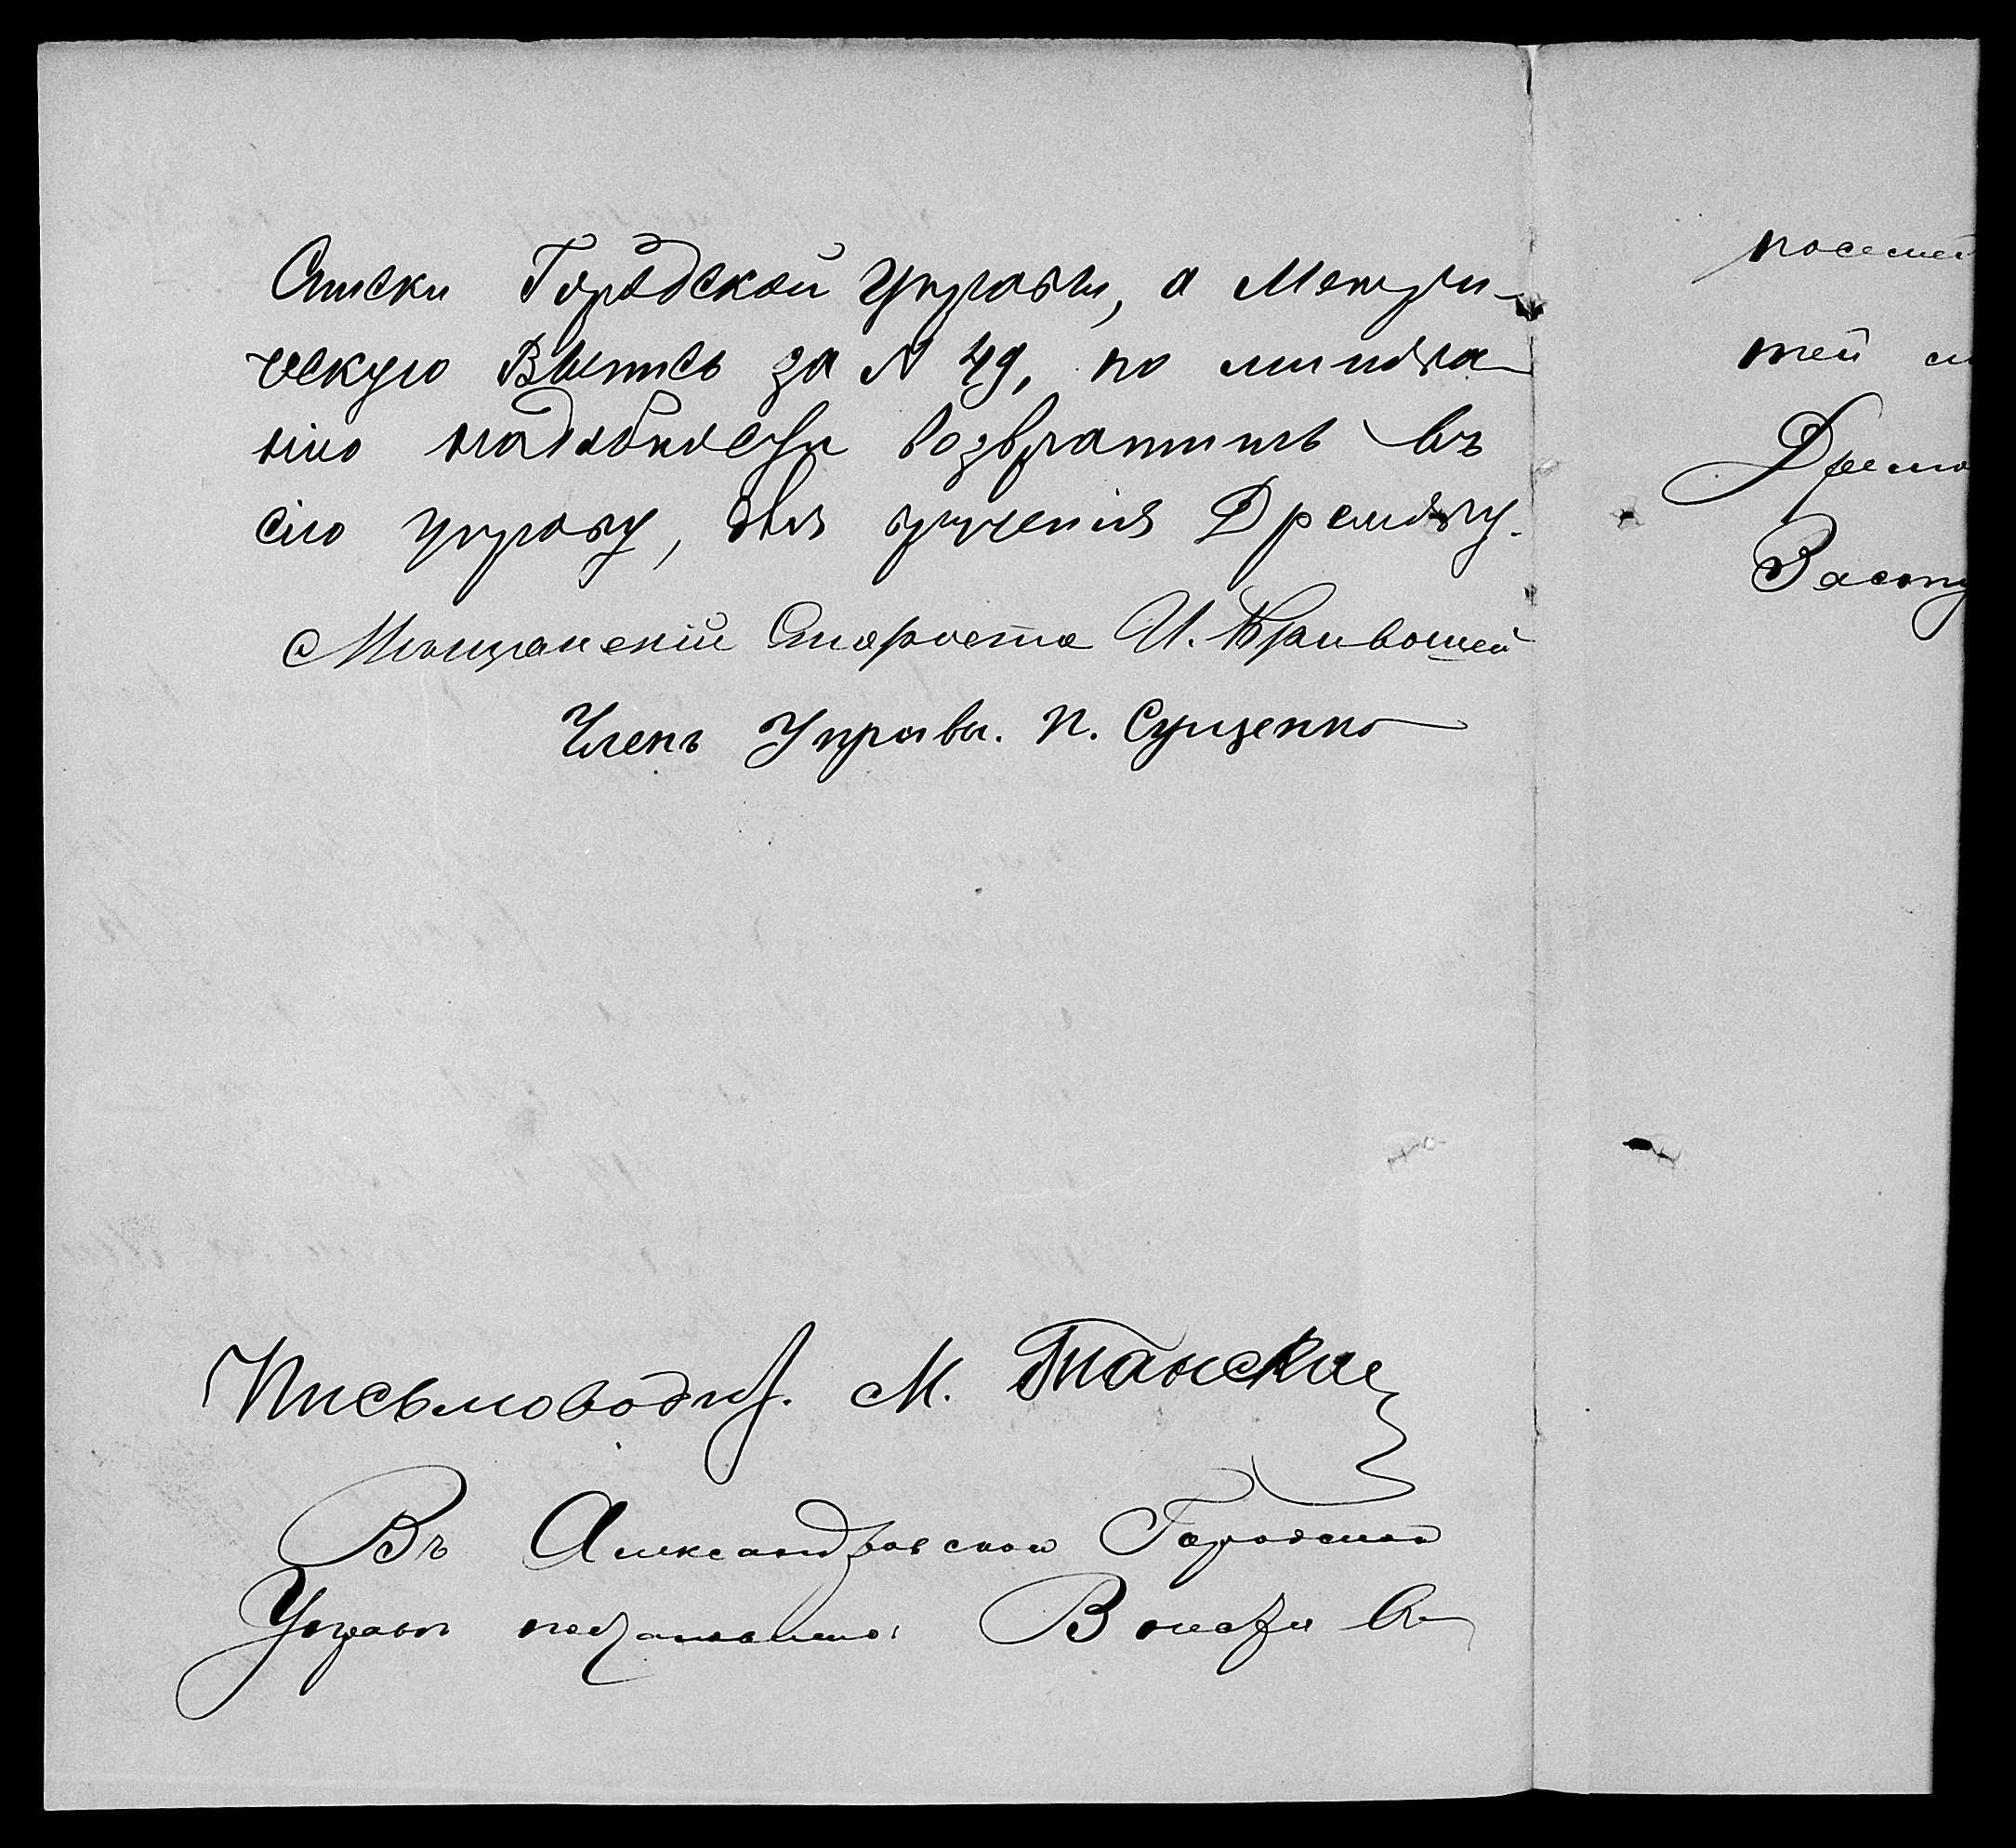 Списки Городской Управы, а Метри-
ческую Выпись за № 49, по минова-
нію надобности возвратить въ
сію управу, для врученія Дремову.
Мѣщанскій Староста И. Кривошей
Членъ Управы. П. Сущенко
Письмоводит. М.
Въ Александровской Городской
Управѣ постановлено: Внести въ
посемей
тей
Дремо
Засту